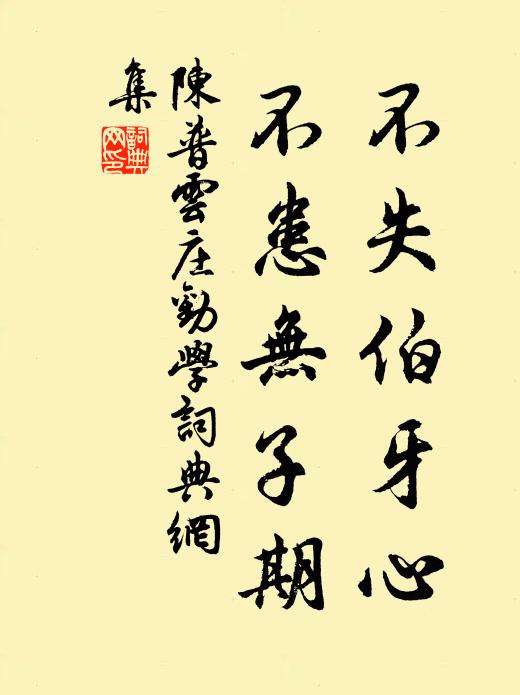 不失伯牙心
不患無子期
陳普雲庄勸學詞典網
集
詞典網印